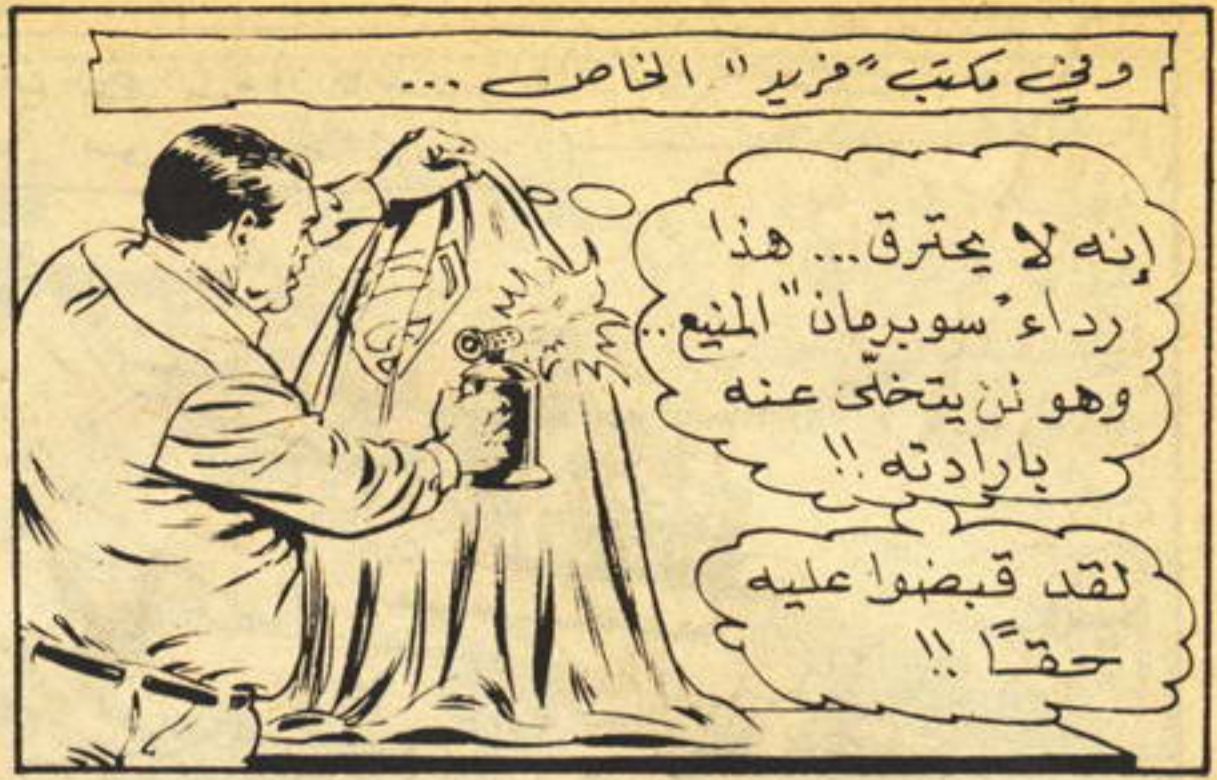 وفي مكتب "فريد" الخاص ...
إنه لا يحترق... هذا
رداء "سوبرمان" المنيع..
وهو لن يتخلّى عنه
بارادته !!
لقد قبضوا عليه
حقــًا !!